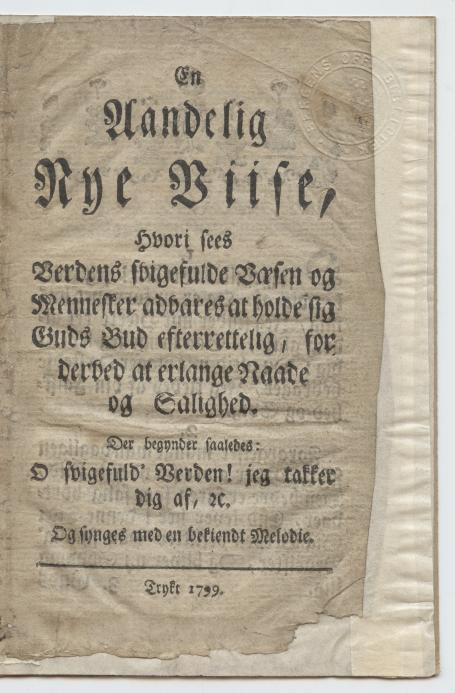 En
Aandelig
Nye Viise,
Hvori sees
Verdens svigefulde Væsen og
Mennesker advares at holde sig
Guds Bud efterrettelig, for
derved at erlange Naade
og Salighed.
Der begynder saaledes:
O svigefuld' Verden! jeg takker
dig af, ꝛc.
Og synges med en bekiendt Melodie.
Trykt 1799.